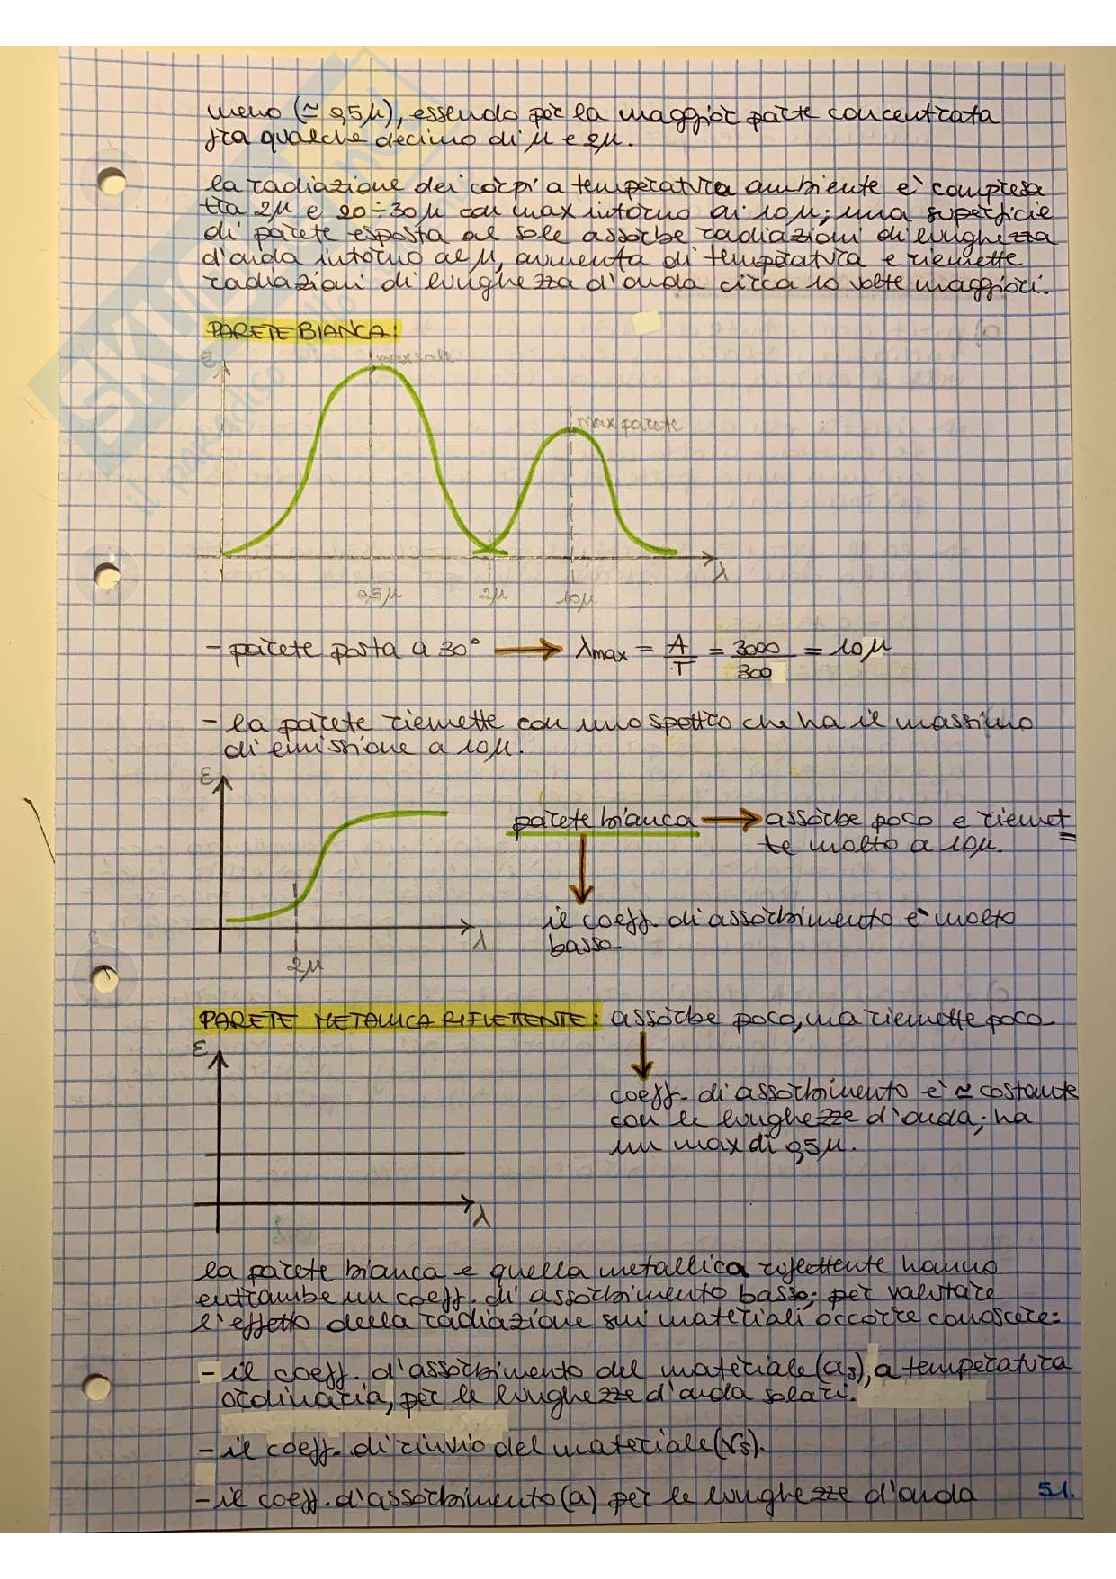 meno (≃ 0,5μ), essendo per la maggior parte concentrata
fra qualche decimo di μ e 2μ.
la radiazione dei corpi a temperatura ambiente è compresa
tra 2μ e 20÷30μ con max intorno ai 10μ; una superficie
di parete esposta al sole assorbe radiazioni di lunghezza
d'onda intorno al μ, aumenta di temperatura e riemette
radiazioni di lunghezza d'onda circa 10 volte maggiori.
PARETE BIANCA:
ε
max sole
max parete
λ
0,5μ 2μ 10μ
- parete posta a 30° → λmax = A/T = 3000/300 = 10μ
- la parete riemette con uno spettro che ha il massimo
di emissione a 10μ.
ε
parete bianca → assorbe poco e riemet
te molto a 10μ.
il coeff. di assorbimento è molto
basso
λ
2μ
PARETE METALLICA RIFLETTENTE: assorbe poco, ma riemette poco
ε
coeff. di assorbimento è ≃ costante
con le lunghezze d'onda; ha
un max di 0,5μ.
λ
la parete bianca e quella metallica riflettente hanno
entrambe un coeff. di assorbimento basso; per valutare
l'effetto della radiazione sui materiali occorre conoscere:
- il coeff. d'assorbimento del materiale (as), a temperatura
ordinaria, per le lunghezze d'onda solari.
- il coeff. di rinvio del materiale (rs).
- il coeff. d'assorbimento (a) per le lunghezze d'onda
51.